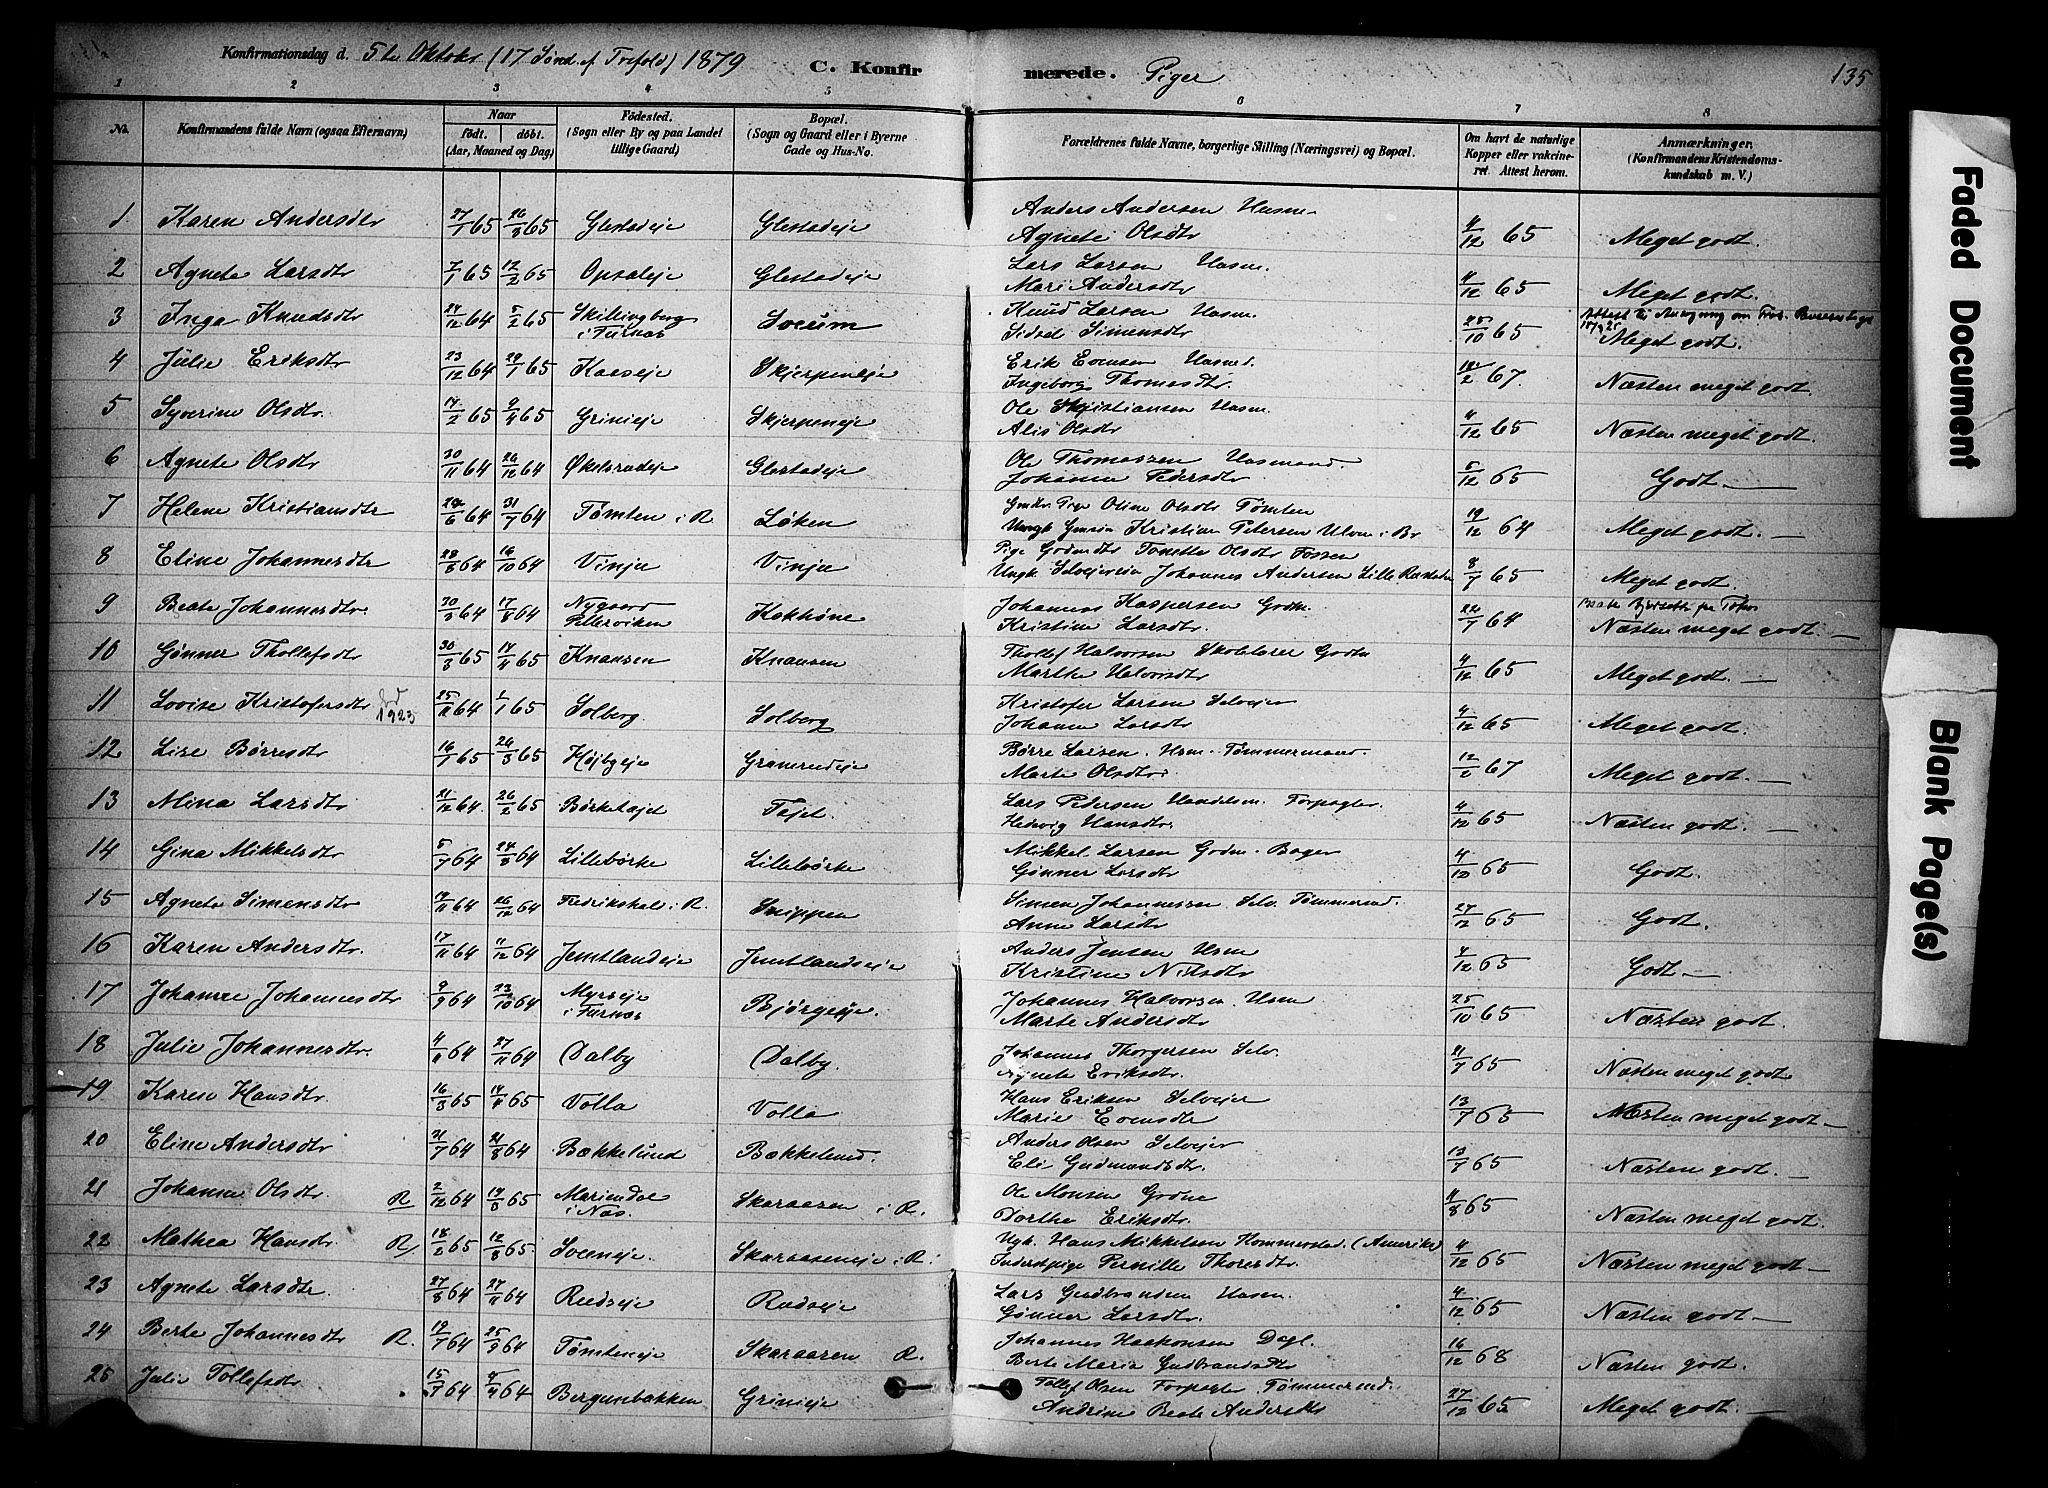 Konfirmationsdag d. 5te Oktober (17 Sønd. ef Trefold) 1879 C. Konfirmerede. Piger 135
1 2 3 4 5 6 7 8
No. Konfirmandens fulde Navn (ogsaa Efternavn) Naar født. døbt. (Aar, Maaned og Dag) Fødested. (Sogn eller By og paa Landet tillige Gaard) Bopæl. (Sogn og Gaard eller i Byerne Gade og Hus-No. Forældrenes fulde Navne, borgerlige Stilling (Næringsvei) og Bopæl. Om havt de naturlige Kopper eller vakcineret. Attest herom. Anmærkninger. (Konfirmandens Kristendomskundskab m. V.)
1 Karen Andersdtr 27/1 65 26/3 65 Glestadeje Glestadeje Anders Andersen Husm. Agnete Olsdtr 4/12 65 Meget godt.
2 Agnete Larsdtr 7/1 65 12/2 65 Opsaleje Glestadeje Lars Larsen Husm. Mari Andersdtr 4/12 65 Meget godt.
3 Inga Knudsdtr 24/12 64 5/2 65 Skillingberg i Furnæs Socum Knud Larsen Husm. Sidsel Simensdtr 25/10 65 Meget godt.
4 Julie Eriksdtr 23/12 64 29/1 65 Kaaseje Skjerpeneje Erik Evensen Ingeborg Thomasdtr 67. Næsten meget godt.
5 Syverine Olsdtr. 14/2 65 9/4 65 Grinieje Skjerpeneje Ole Kristiansen Husm. Alis Olsdtr 4/12 65 Næsten meget godt.
6 Agnete Olsdtr 30/11 64 26/12 64 Økelsrudeje Glestadeje Ole Thomassen Husmand. Johanne Pedersdtr 5/12 65 Godt. —
7 Helene Kristiansdtr 64 31/7 64 Tømten i R. Løken Pige Oline Olsdtr Tømten Kristian Petersen Ulven i Br 19/12 64 Meget godt. —
8 Eline Johannesdtr 28/8 64 16/10 64 Vinju Vinju Pige Tonette Olsdtr Fossen Ungk. Johannes Andersen Lille 8/7 65 Meget godt. —
9 Beate Johannesdtr 30/3 64 17/8 64 Nygaard Pellerviken Kokhöne Johannes Kaspersen Gdm. Kristine Larsdtr 22/7 64 Næsten meget godt. —
10 Gønner Thollefsdtr 30/3 65 17/4 65 Knausen Knausen Thollef Halvorsen Skolelærer Marthe Halvorsdtr 4/12 65 Meget godt. —
11 Lovise Kristofersdtr 1923 25/11 64 1/1 65 Solberg. Solberg Kristofer Larsen Selvejer Johanne Larsdtr 4/12 65 Meget godt. —
12 Lise Børresdtr 16/1 65 26/3 65 Højbyeje Granerudeje Børre Larsen. Hsm. Tømmermand. Marte Olsdtr 67 Meget godt. —
13 Mina Larsdtr 21/12 64. 26/2 65 Børketajet Tajet. Lars Pedersen Handelsm. Forpagter. Hedevig Hansdtr. 4/12 65 Næsten godt. —
14 Gina Mikkelsdtr 5/7 64 24/8 64 Lillebörke Lillebörke Mikkel Larsen Gdm. Bager Gønner Larsdtr 4/12 65 Godt.
15 Agnete Simensdtr 64 26/12 64 Fredrikshal i R. Snippen Simen Johannessen. Selv. Tømmermd. Anne Larsdtr 27/12 65 Godt.
16 Karen Andersdtr. 17/11 64 11/12 64 Jemtlandeje Jemtlandseje Anders Jensen Hsm Kristine Nilsdtr 4/12 65 Godt —
17 Johanne Johannesdtr 9/9 64 23/10 64 Myrseje i Furnæs Bjørgeeje. Johannes Halvorsen. Husm Marte Andersdtr 25/10 65 Næsten godt.
18 Julie Johannesdtr. 4/11 64 27/11 64 Dalby Dalby. Johannes Thorgersen Selv. Agnete Eriksdtr. 21/7 65 Næsten meget godt
19 Karen Hansdtr 16/3 65 17/4 65 Volla Volla Hans Eriksen Selvejer Marie Evensdtr 13/7 65 Næsten meget godt. —
20 Eline Andersdtr 21/7 64 21/8 64 Bækkelund Bækkelund. Anders Olsen Selvejer Eli Gudmundsdtr. 13/7 65 Næsten godt. —
21 Johanne Olsdtr R 2/12 64 19/3 65 Mariendal i Næs. Skaraasen i R. Ole Monsen Dorthe Eriksdtr. 11/8 65 Næsten meget godt.
22 Mathea Hansdtr. R 18/2 65 12/3 65. Soceneje. Skaraaseneje i R. Ugk. Hans Mikkelsen Hommerstad. (Amerika) Inderstpige Pernille Thoresdtr. 4/12 65 Næsten meget godt. —
23 Agnete Larsdtr. 27/8 64 27/11 64 Rudseje Rudseje Lars Gudbrandsen Husm. Gønner Larsdtr 4/12 65 Næsten godt. —
24 Berte Johannesdtr R. 19/7 64 25/9 64 Tømteneje Skaraasen R. Johannes Haakonsen Dagl. Berte Maria Gudbrandsdtr 16/12 68 Næsten godt.
25 Julie Tollefsdtr 15/3 64 64 Bergumbakken Grinieje Tollef Olsen Forpagter. Tømmermd. Andrine Beate Andersdtr 27/12 65 Meget godt. —
Faded Document
Blank Page(s)